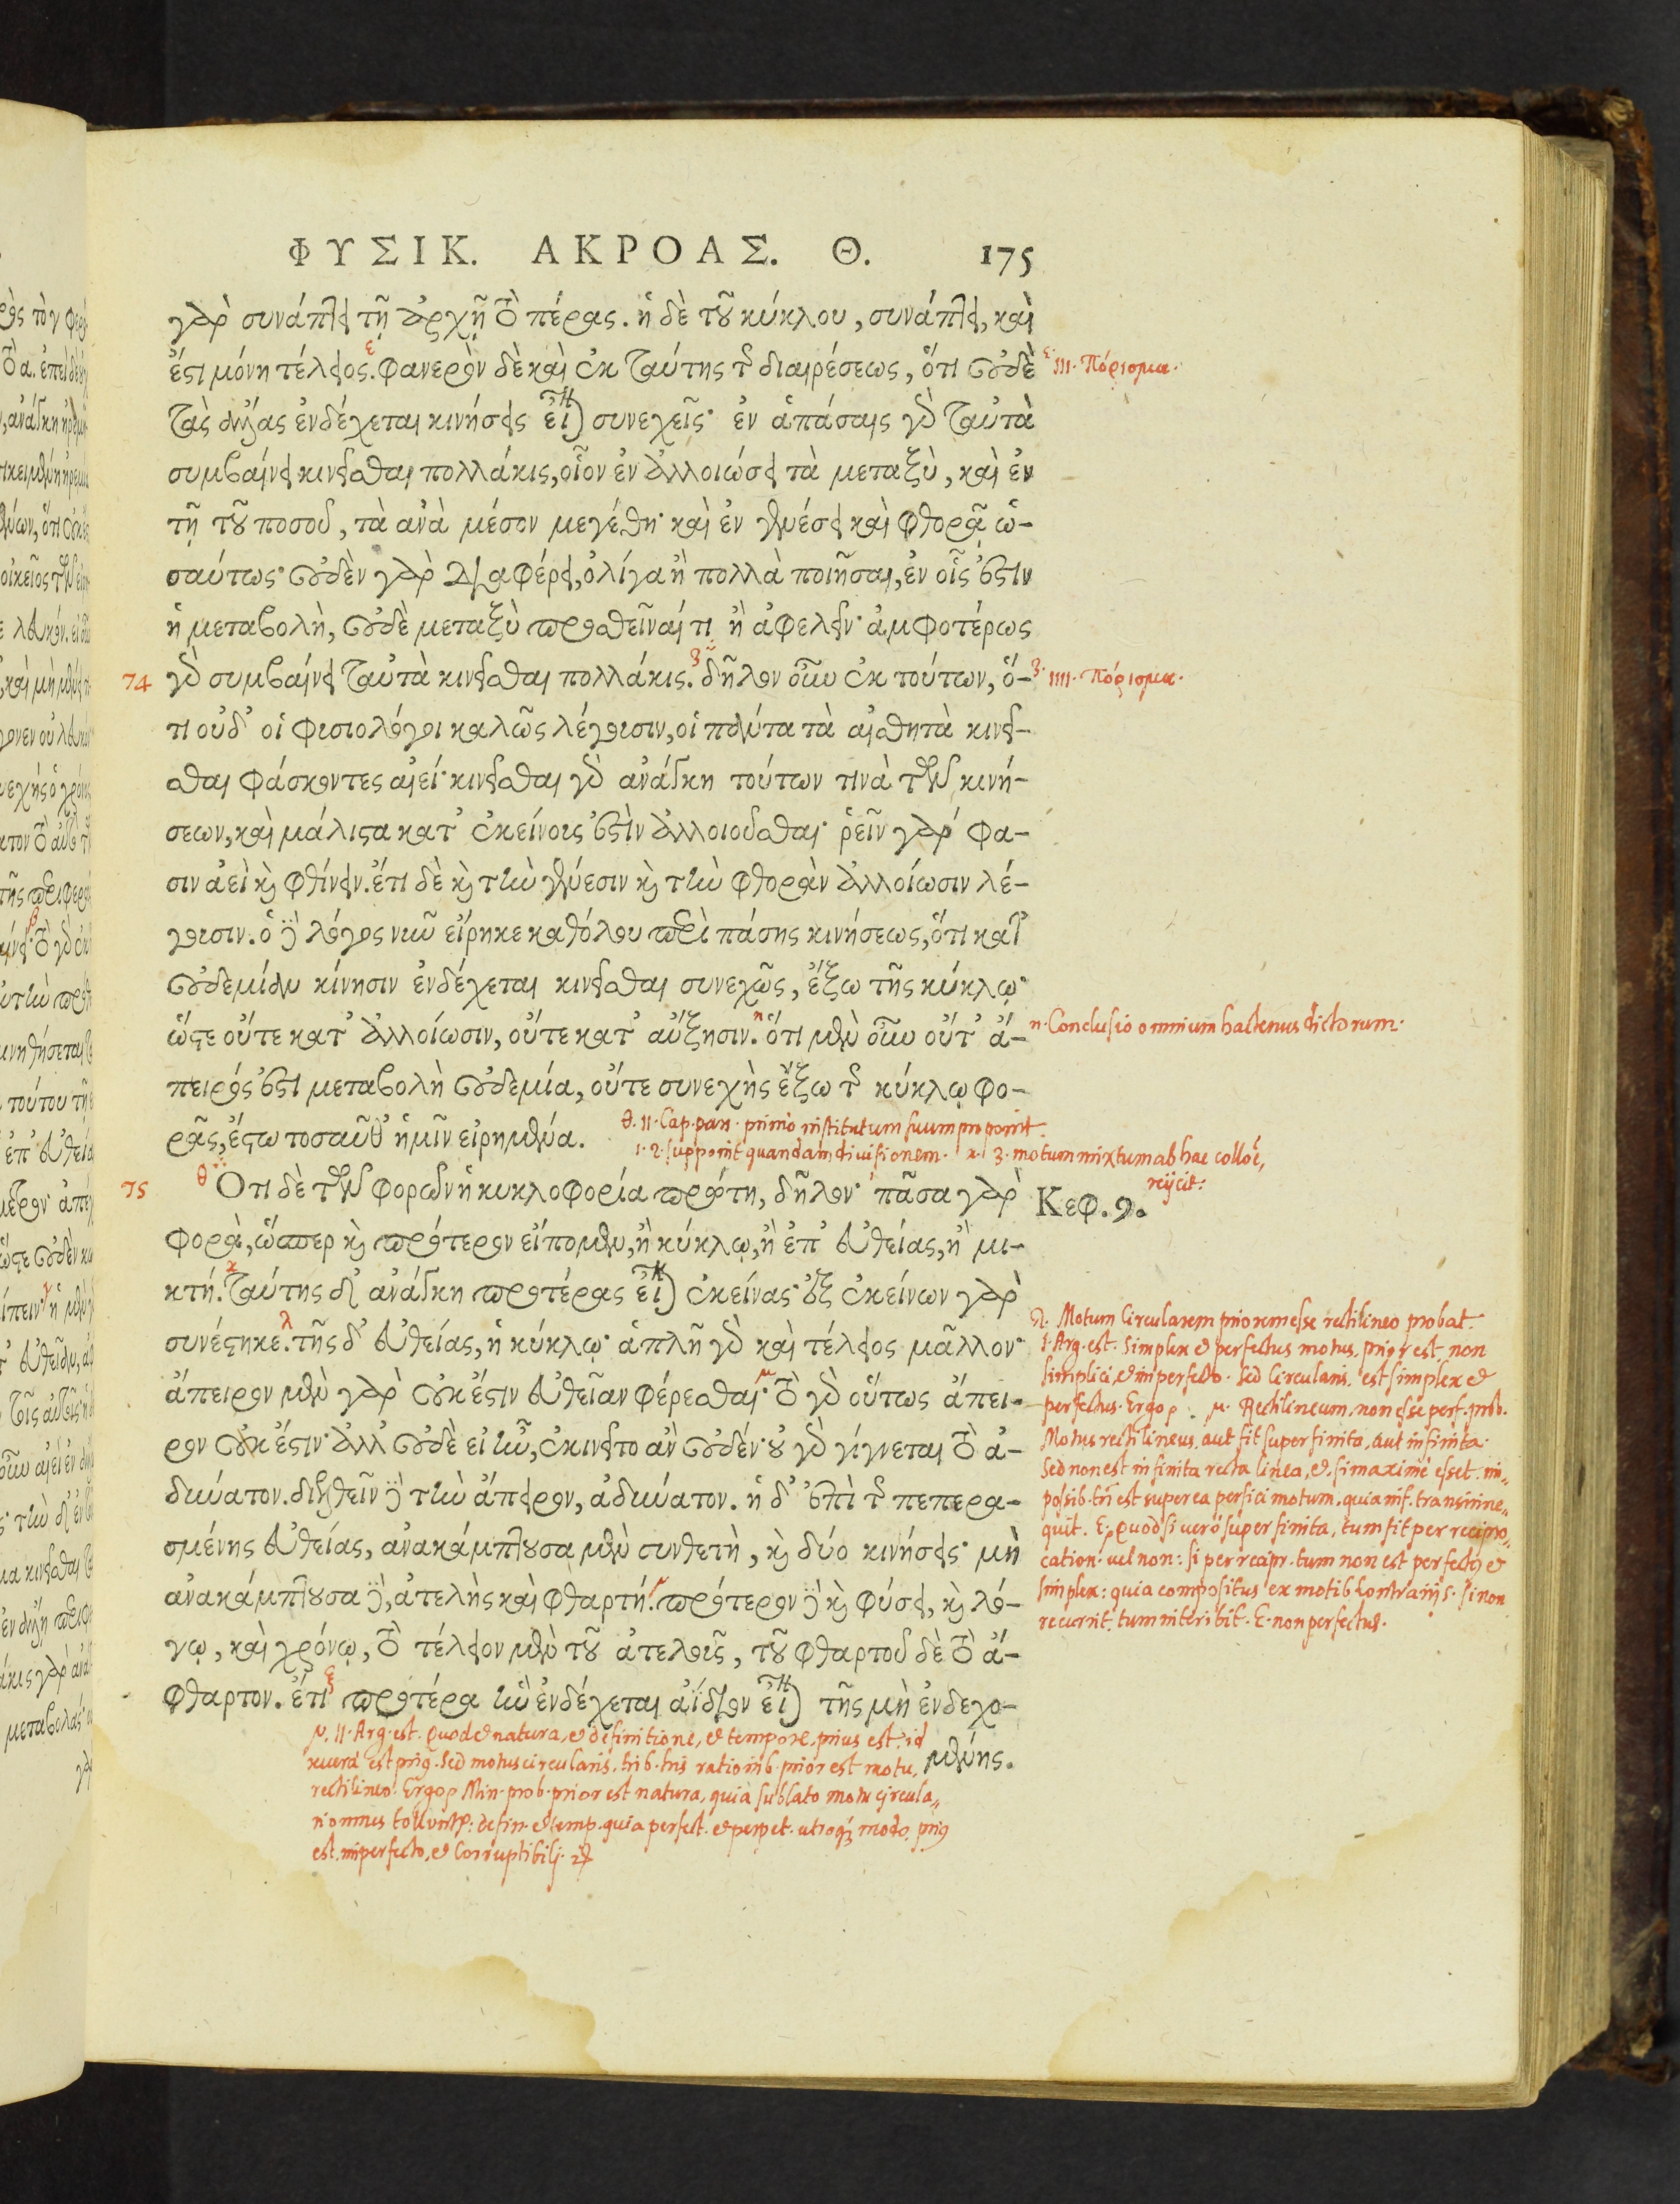 ΦΥΣΙΚ. ΑΚΡΟΑΣ. Θ. 175
γὰρ συνάπτει τῇ ἀρχῇ τὸ πέρας. ἡ δὲ τοῦ κύκλου, συνάπτει, καὶ
ἔστι μόνη τέλειος. φανερὸν δὲ καὶ ἐκ ταύτης τῆς διαιρέσεως, ὅτι οὐδὲ
ε· III. Πόρισμα.
τὰς ἄλλας ἐνδέχεται κινήσεις εἶναι συνεχεῖς· ἐν ἁπάσαις γὰρ ταὐτὰ
συμβαίνει κινεῖσθαι πολλάκις, οἷον ἐν ἀλλοιώσει τὰ μεταξὺ, καὶ ἐν
τῇ τοῦ ποσοῦ, τὰ ἀνὰ μέσον μεγέθη· καὶ ἐν γενέσει καὶ φθορᾷ ὡ-
σαύτως· οὐδὲν γὰρ διαφέρει, ὀλίγα ἢ πολλὰ ποιῆσαι, ἐν οἷς ἐστιν
ἡ μεταβολὴ, οὐδὲ μεταξὺ προσθεῖναί τι ἢ ἀφελεῖν· ἀμφοτέρως
74 γὰρ συμβαίνει ταὐτὰ κινεῖσθαι πολλάκις. δῆλον οὖν ἐκ τούτων, ὅ-
ζ· IIII. Πόρισμα.
τι οὐδ' οἱ φισιολόγοι καλῶς λέγουσιν, οἱ πάντα τὰ αἰσθητὰ κινεῖ-
σθαι φάσκοντες αἰεί· κινεῖσθαι γὰρ ἀνάγκη τούτων τινὰ τῶν κινή-
σεων, καὶ μάλιστα κατ' ἐκείνους ἐστὶν ἀλλοιοῦσθαι· ῥεῖν γάρ φα-
σιν ἀεὶ καὶ φθίνειν. ἔτι δὲ καὶ τὴν γένεσιν καὶ τὴν φθορὰν ἀλλοίωσιν λέ-
γουσιν. ὁ δὲ λόγος νῦν εἴρηκε καθόλου περὶ πάσης κινήσεως, ὅτι κατ'
οὐδεμίαν κίνησιν ἐνδέχεται κινεῖσθαι συνεχῶς, ἔξω τῆς κύκλῳ·
ὥστε οὔτε κατ' ἀλλοίωσιν, οὔτε κατ' αὔξησιν. ὅτι μὲν οὖν οὔτ' ἄ-
η· Conclusio omnium hactenus dictorum.
πειρός ἐστι μεταβολὴ οὐδεμία, οὔτε συνεχὴς ἔξω τῆς κύκλῳ φο-
ρᾶς, ἔστω τοσαῦθ' ἡμῖν εἰρημένα.
θ. II. Cap. pars. primo institutum suum proponit.
1. 2. supponit quandam divisionem. κ. 3. motum mixtum ab hac
reijcit:
75 Ὅτι δὲ τῶν φορῶν ἡ κυκλοφορία πρώτη, δῆλον· πᾶσα γὰρ
Κεφ. 9.
φορὰ, ὥσπερ καὶ πρότερον εἴπομεν, ἢ κύκλῳ, ἢ ἐπ' εὐθείας, ἢ μι-
κτή. ταύτης δ' ἀνάγκη προτέρας εἶναι ἐκείνας· ἐξ ἐκείνων γὰρ
συνέστηκε. τῆς δ' εὐθείας, ἡ κύκλῳ· ἁπλῆ γὰρ καὶ τέλειος μᾶλλον·
ἄπειρον μὲν γὰρ οὐκ ἔστιν εὐθεῖαν φέρεσθαι· τὸ γὰρ οὕτως ἄπει-
ρον οὐκ ἔστιν· ἀλλ' οὐδὲ εἰ ἦν, ἐκινεῖτο ἂν οὐδέν· οὐ γὰρ γίγνεται τὸ ἀ-
δύνατον. διελθεῖν δὲ τὴν ἄπειρον, ἀδύνατον. ἡ δ' ἐπὶ τῆς πεπερα-
σμένης εὐθείας, ἀνακάμπτουσα μὲν συνθετὴ, καὶ δύο κινήσεις· μὴ
ἀνακάμπτουσα δὲ, ἀτελὴς καὶ φθαρτή. πρότερον δὲ καὶ φύσει, καὶ λό-
γῳ, καὶ χρόνῳ, τὸ τέλειον μὲν τοῦ ἀτελοῦς, τοῦ φθαρτοῦ δὲ τὸ ἄ-
φθαρτον. ἔτι προτέρα ἣν ἐνδέχεται ἀΐδιον εἶναι τῆς μὴ ἐνδεχο-
μένης.
λ. Motum Circularem priorem esse rectilineo probat.
1. Arg. est. Simplex et perfectus motus. prior est. non
simplici, et imperfecto. Sed Circularis. est simplex et
perfectus. Ergo. μ. Rectilineum. non esse perf. prob.
Motus rectilineus. aut fit super finita, aut infinita.
Sed non est infinita recta linea, et. si maximè esset: im-
possib. tñ est super ea perfici motum. quia inf. transiri ne-
quit. E. Quod si verò super finita, tum fit per recipro-
cation. vel non: si per recipr. tum non est perfectus et
simplex: quia compositus ex motib. contrarijs. Si non
recurrit. tum interibit. E. non perfectus.
ν. II. Arg. est. Quod et natura, et definitione, et tempore. prius est. id
revera est prius. Sed motus circularis. trib. his rationib. prior est motu,
rectilineo. Ergo. Min. prob. prior est natura, quia sublato motu circula-
ri omnes tolluntur: defin. et temp. quia perfect. et perpet. utroque modo prius
est. imperfecto, et Corruptibili.